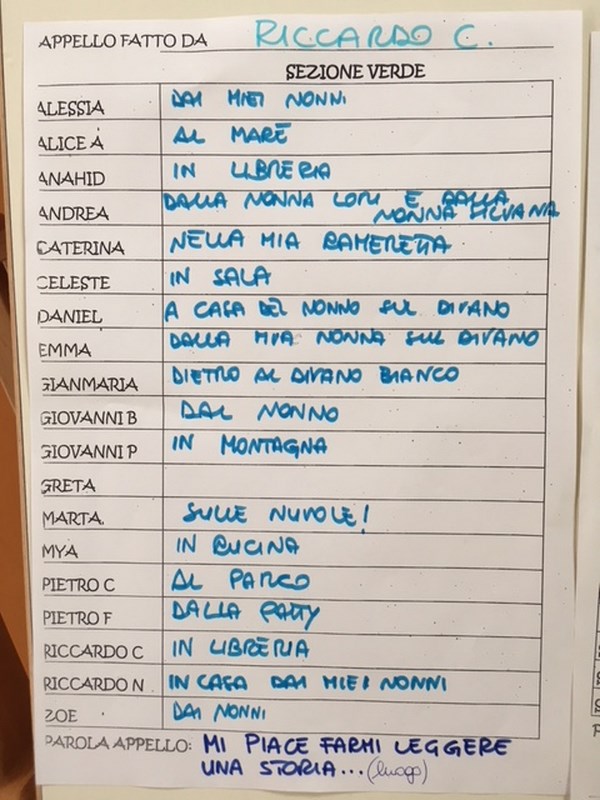 APPELLO FATTO DA RICCARDO C.
SEZIONE VERDE
ALESSIA DAI MIEI NONNI
ALICE A AL MARE
ANAHID IN LIBRERIA
ANDREA DALLA NONNA LORI E DALLA
NONNA SILVANA
CATERINA NELLA MIA CAMERETTA
CELESTE IN SALA
DANIEL A CASA DEL NONNO SUL DIVANO
EMMA DALLA MIA NONNA SUL DIVANO
GIANMARIA DIETRO AL DIVANO BIANCO
GIOVANNI B DAL NONNO
GIOVANNI P IN MONTAGNA
GRETA
MARTA SULLE NUVOLE!
MYA IN CUCINA
PIETRO C AL PARCO
PIETRO F DALLA PATTY
RICCARDO C IN LIBRERIA
RICCARDO N IN CASA DAI MIEI NONNI
ZOE DAI NONNI
PAROLA APPELLO: MI PIACE FARMI LEGGERE
UNA STORIA... (luogo)